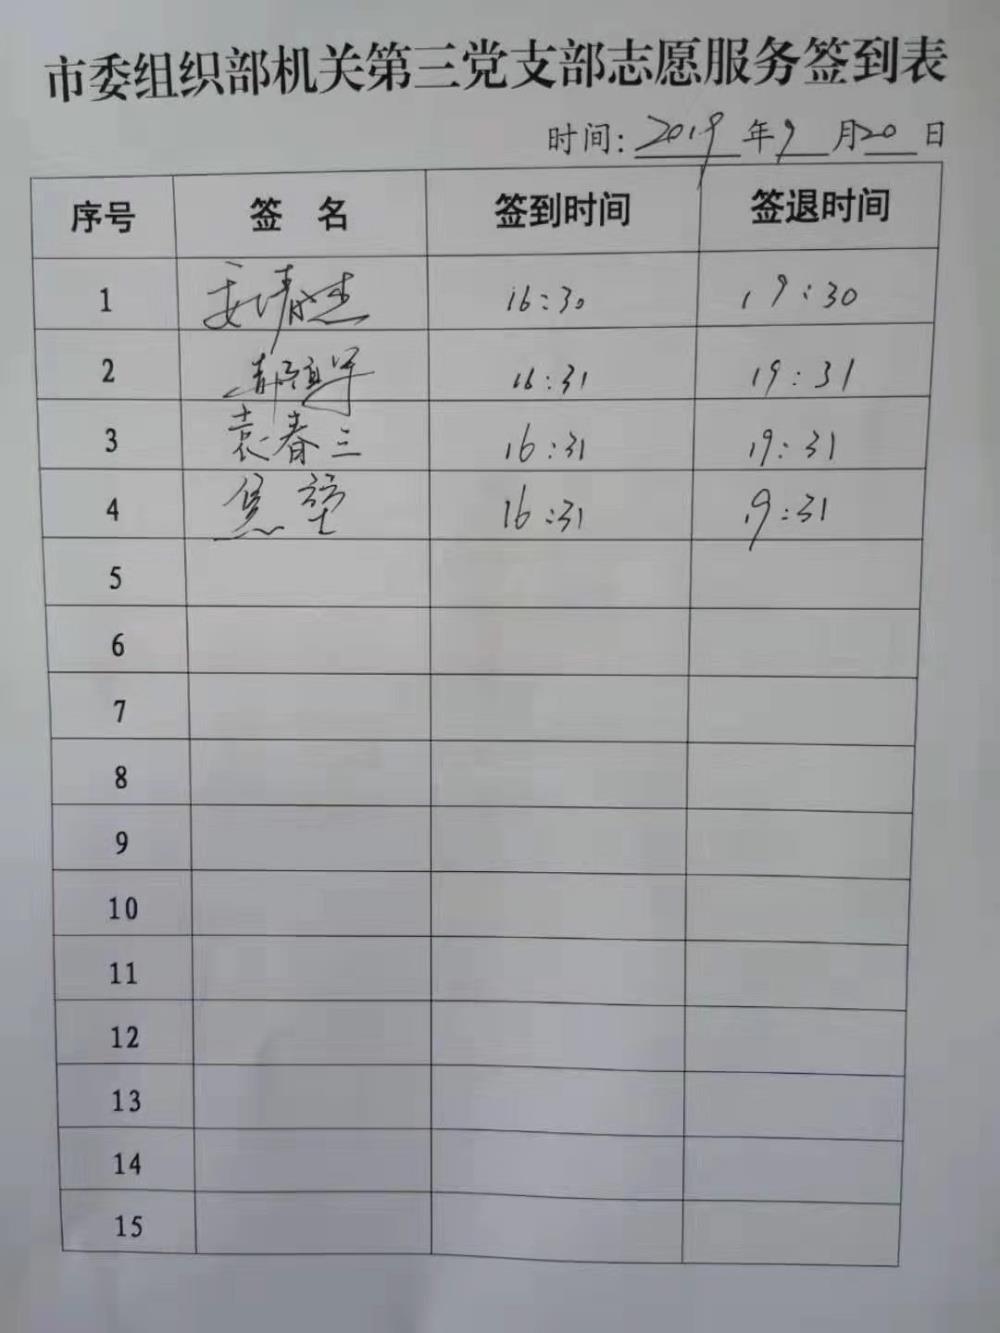 市委组织部机关第三党支部志愿服务签到表
时间: 2019 年 9 月 20 日
序号 签 名 签到时间 签退时间
1 16:30 19:30
2 16:31 19:31
3 袁春三 16:31 19:31
4 16:31 19:31
5
6
7
8
9
10
11
12
13
14
15